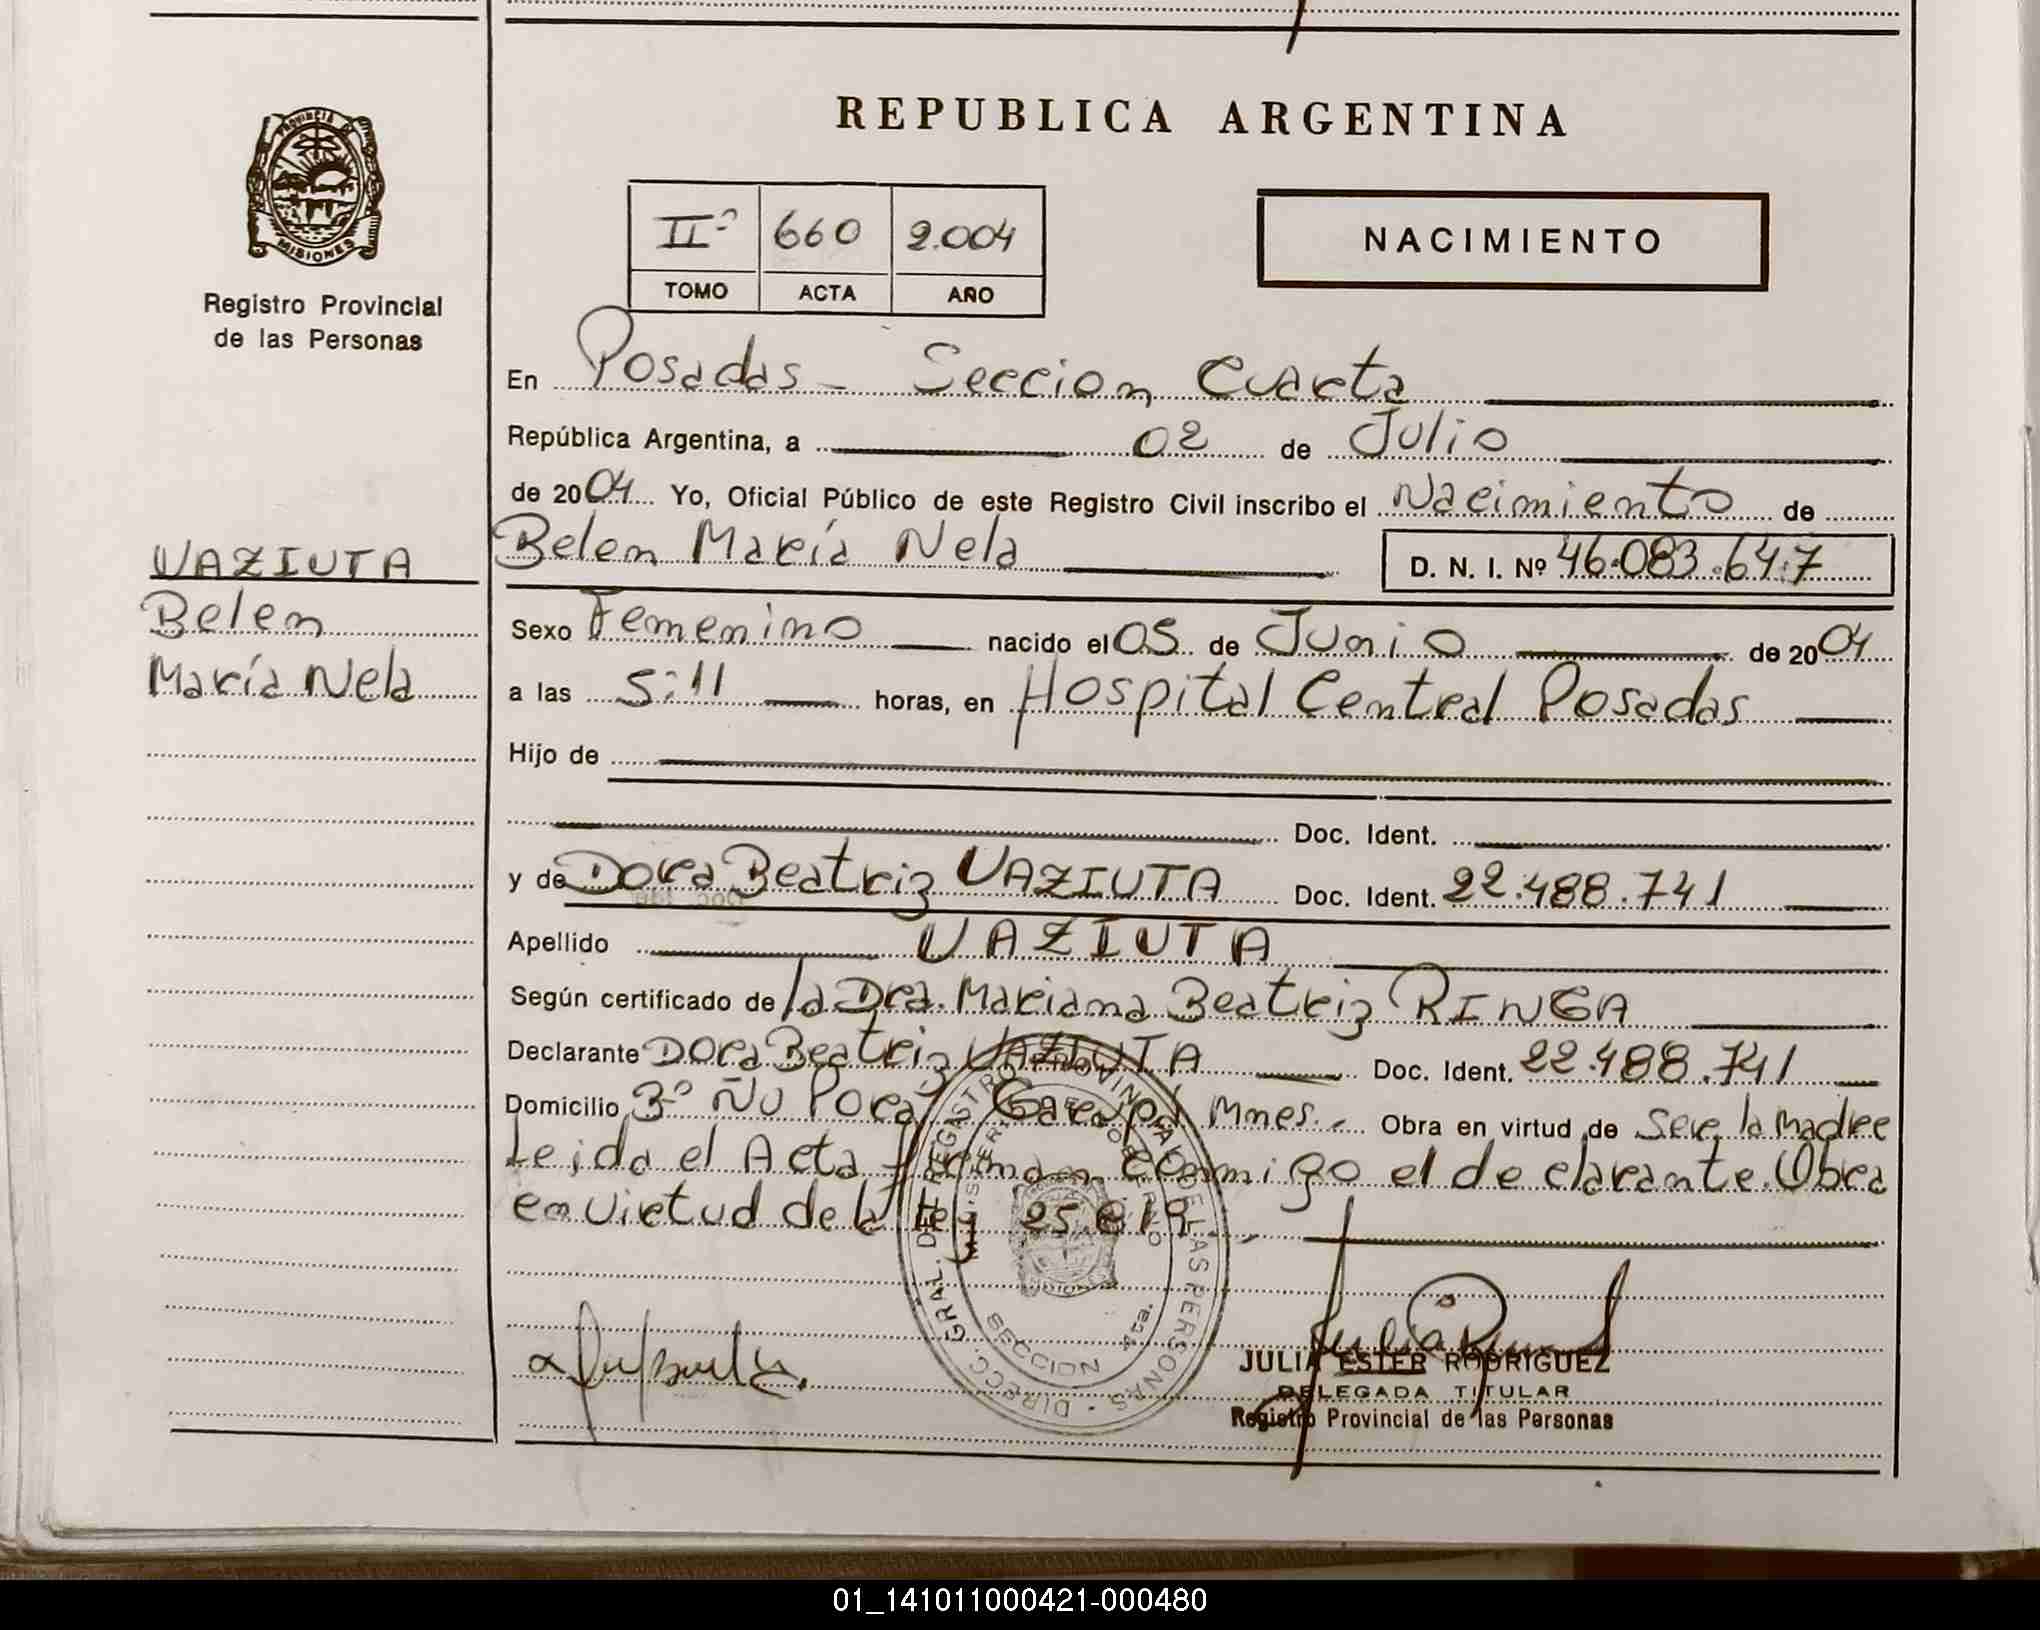 REPUBLICA ARGENTINA
PROVINCIA DE
MISIONES
Registro Provincial
de las Personas
IIº 660 2.004
TOMO ACTA AÑO
NACIMIENTO
En Posadas - Seccion Cuarta
República Argentina, a 02 de Julio
de 2004 Yo, Oficial Público de este Registro Civil inscribo el Nacimiento de
VAZIUTA
Belen
María Nela
Belen María Nela D. N. I. Nº 46.083.647
Sexo Femenino nacido el 05 de Junio de 2004
a las 5:11 horas, en Hospital Central Posadas
Hijo de
Doc. Ident.
y de Dora Beatriz VAZIUTA Doc. Ident. 22.488.741
Apellido VAZIUTA
Según certificado de la Dra. Mariana Beatriz RINGA
Declarante Dora Beatriz VAZIUTA Doc. Ident. 22.488.741
Domicilio 3º Ñu Pora Garupá Mnes.- Obra en virtud de Ser la madre
Leida el Acta firman conmigo el declarante. Obra
en virtud de la ley
DIRECC. GRAL. DEL REGISTRO PROVINCIAL DE LAS PERSONAS
MINISTERIO DE GOBIERNO
SECCION 4ta.
JULIA ESTER RODRIGUEZ
DELEGADA TITULAR
Registro Provincial de las Personas
01_141011000421-000480